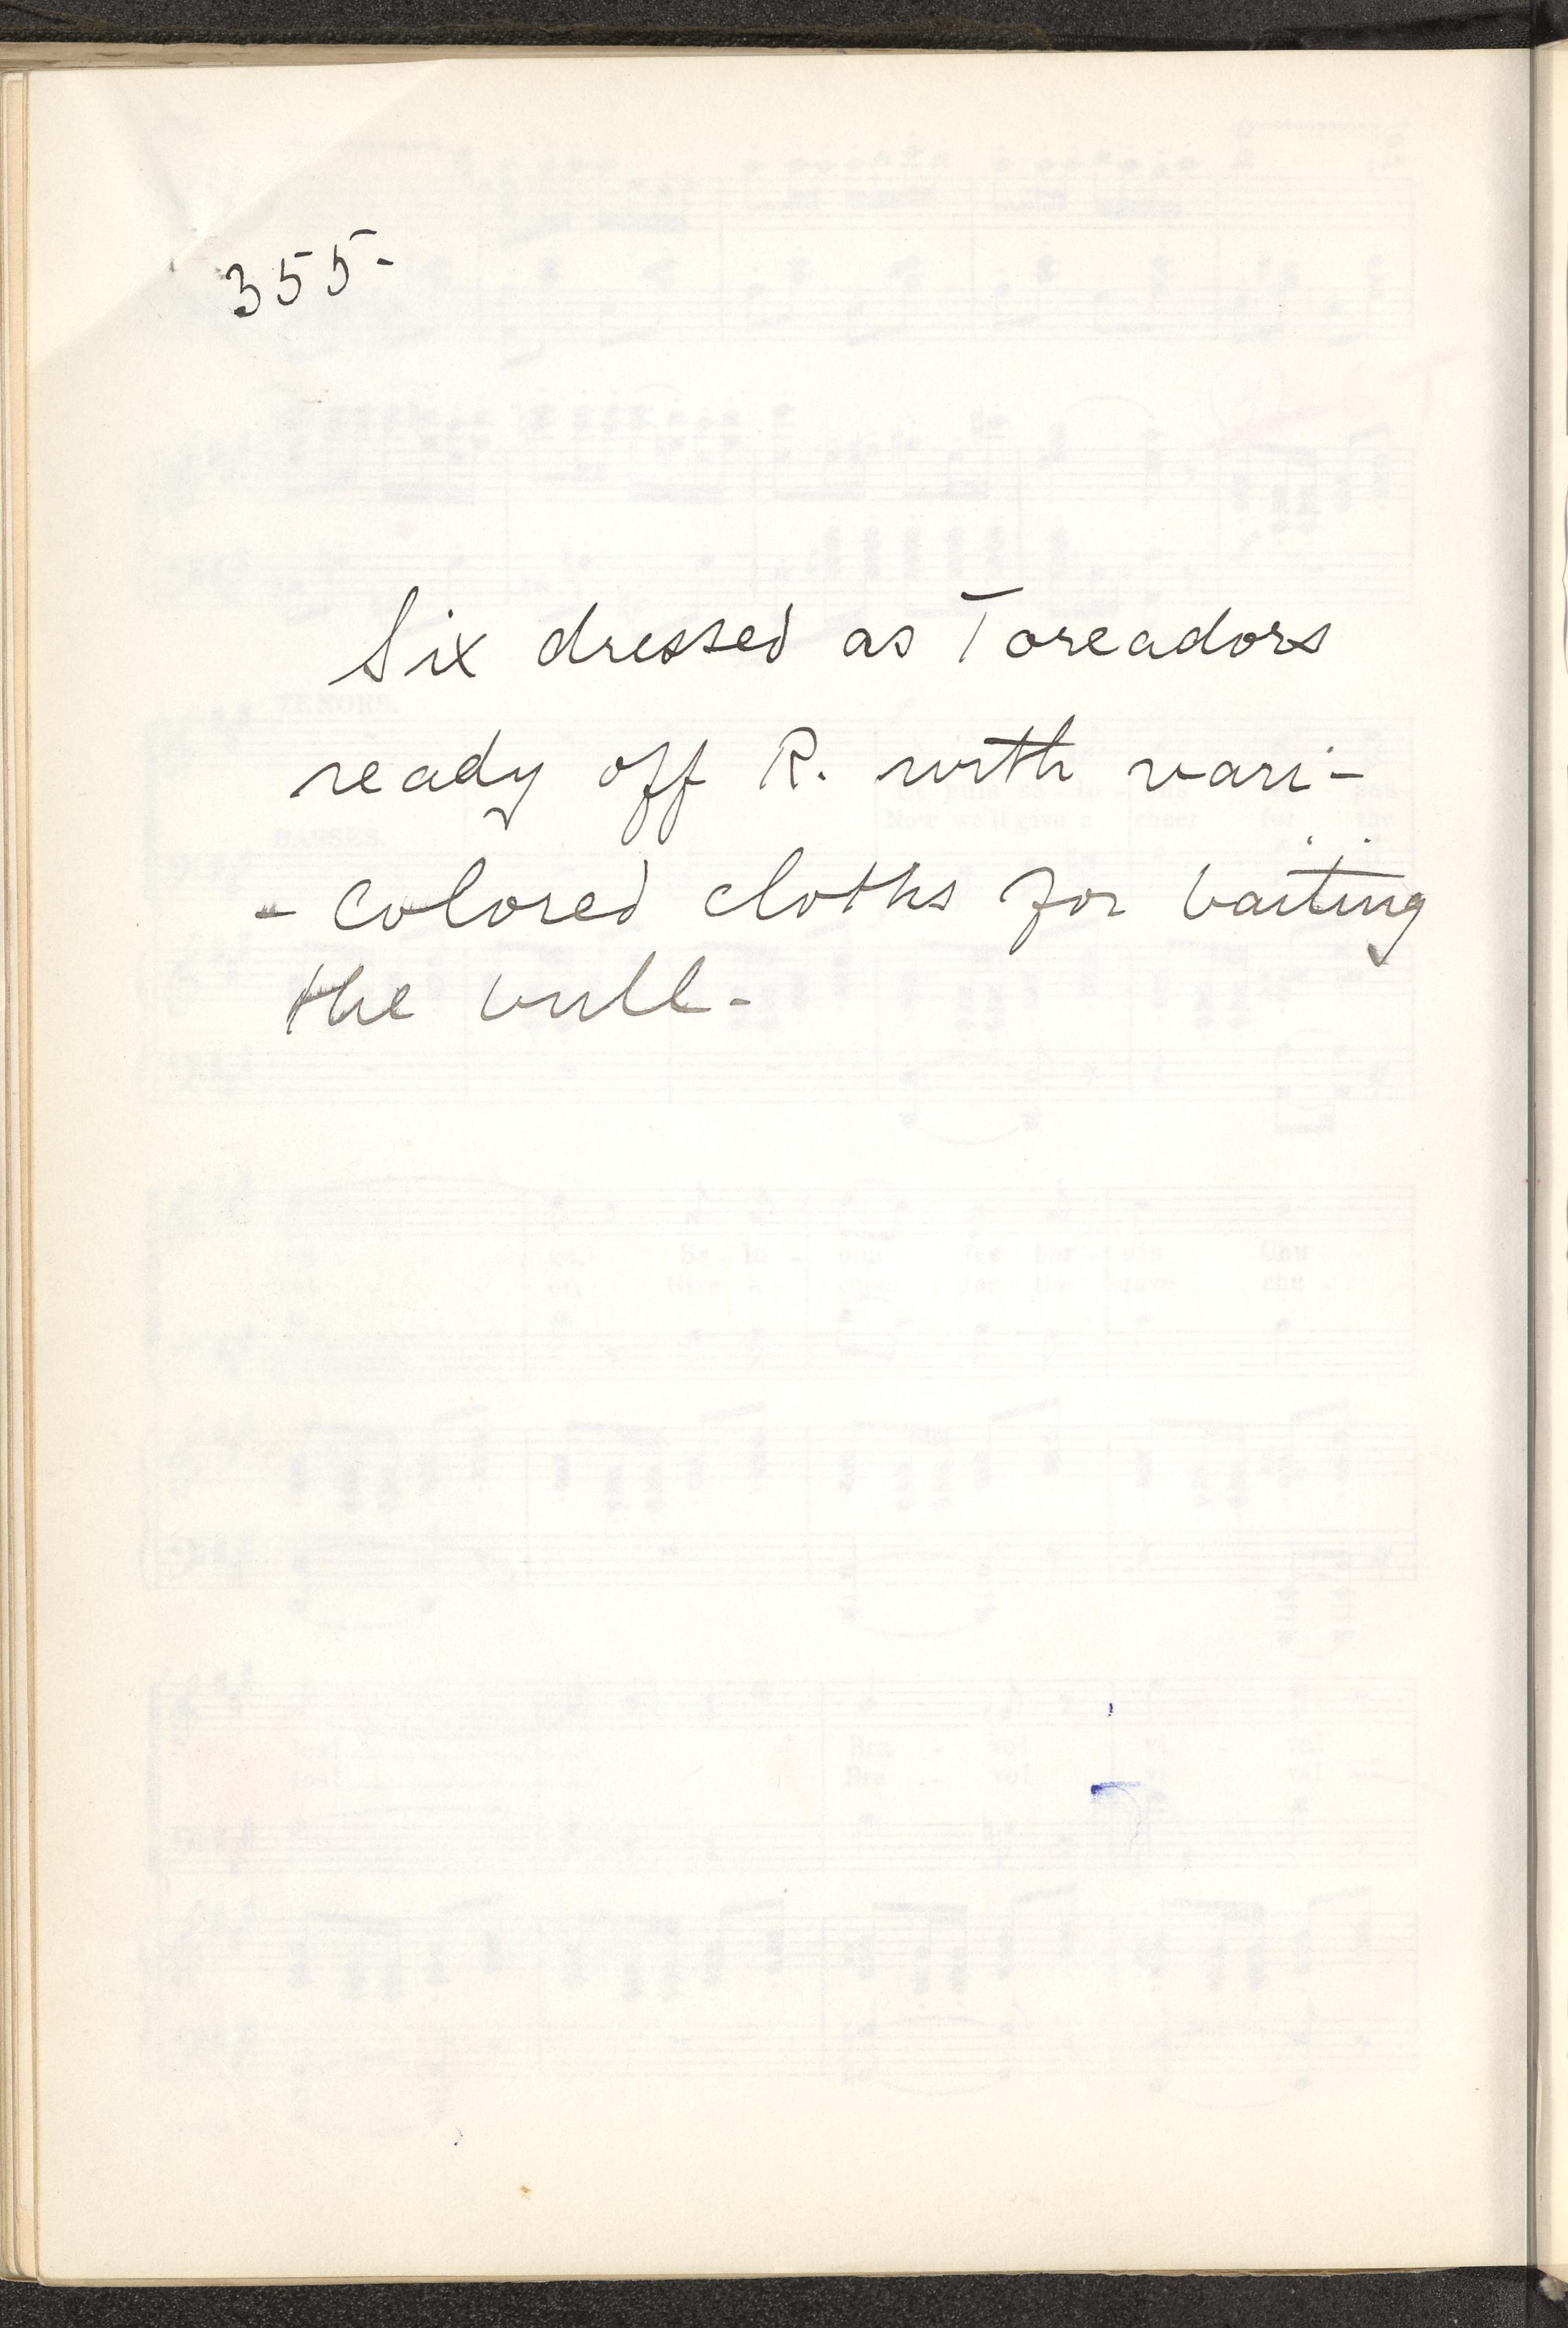 355-
Six dressed as Toreadors
ready off R. with vari-
- colored cloths for baiting
the bull-